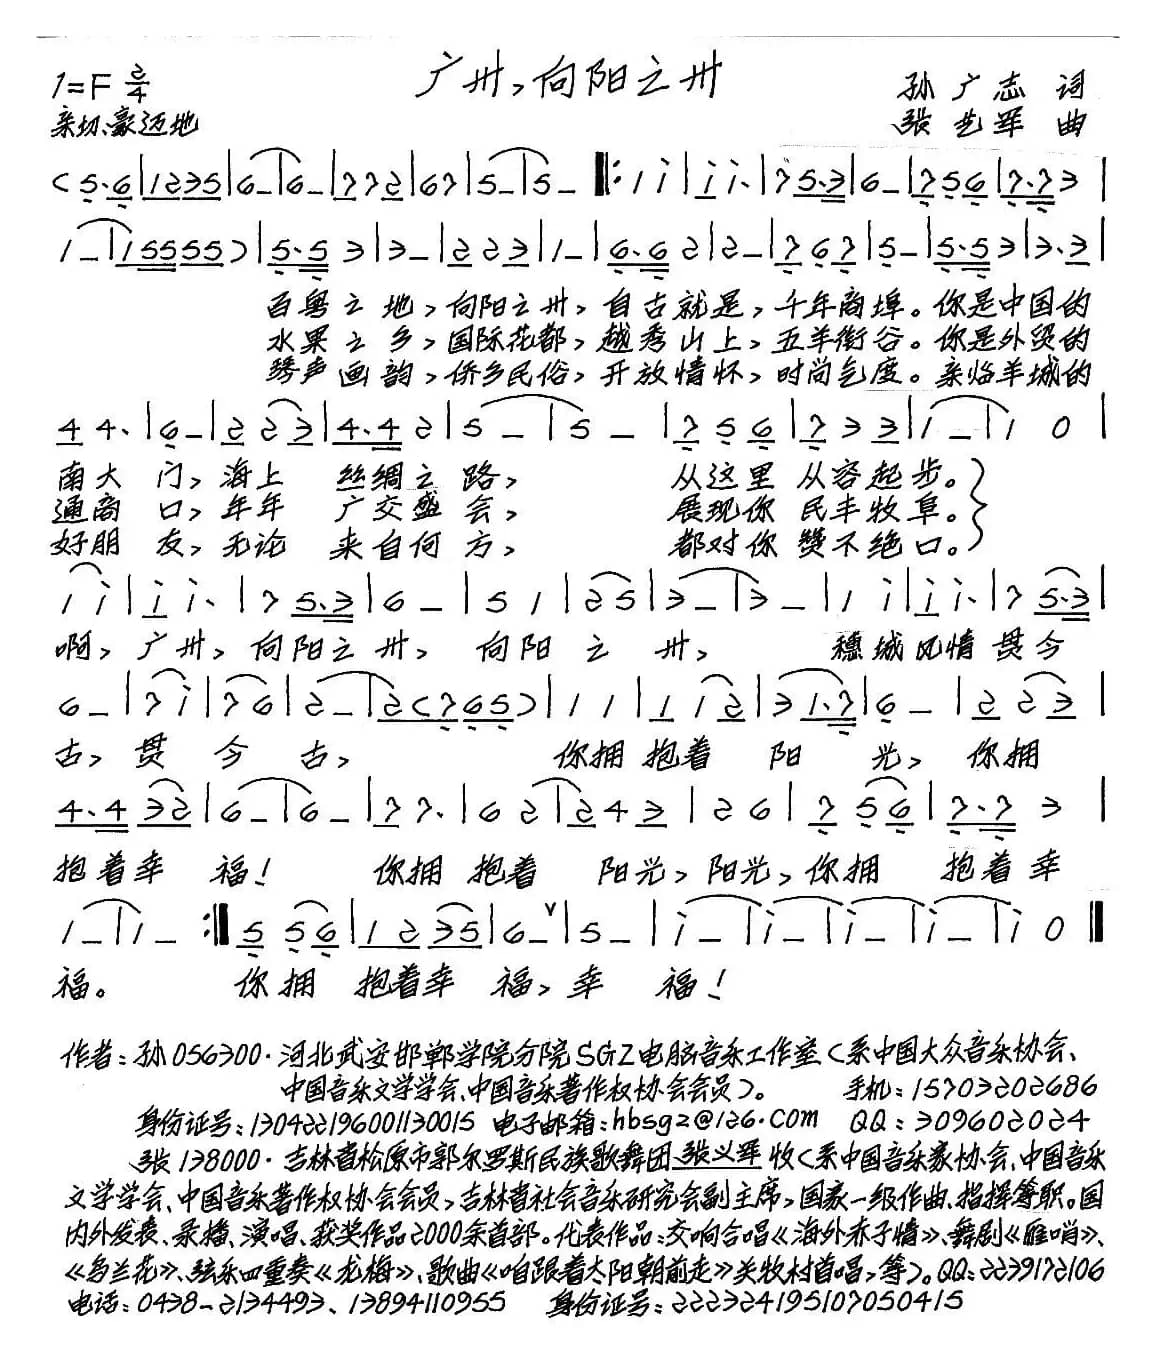 广州，向阳之州
1=F 2/4
孙广志 词
亲切、豪迈地
张艺军 曲
(5·6|1235|6–|6–|772|67|5–|5–‖:1i|ii·|75·3|6–|756|7·73|
1–|15555)|5·53|3–|223|1–|6·62|2–|767|5–|5·53|3·3|
百粤之地，向阳之州，自古就是，千年商埠。你是中国的
水果之乡，国际花都，越秀山上，五羊衔谷。你是外贸的
骑声画韵，侨乡民俗，开放情怀，时尚气度。亲临羊城的
44·|6–|223|4·42|5–|5–|756|733|1–|10|
南大门，海上丝绸之路，从这里从容起步。
通商口，年年广交盛会，展现你民丰牧阜。
好朋友，无论来自何方，都对你赞不绝口。
1i|ii·|75·3|6–|51|25|3–|3–|1i|ii·|75·3|
啊，广州，向阳之州，向阳之州，穗城风情贯今
6–|7i|76|2–|2(765)|11|112|31·7|6–|223|
古，贯今古，你拥抱着阳光，你拥
4·432|6–|6–|77·|62|243|26|756|7·73|
抱着幸福！你拥抱着阳光，阳光，你拥抱着幸
1–|1–:‖556|1235|6–∨|5–|i–|i–|i–|i–|i0‖
福。你拥抱着幸福，幸福！
作者：孙056300·河北武安邯郸学院分院SGZ电脑音乐工作室(系中国大众音乐协会、
中国音乐文学学会、中国音乐著作权协会会员)。手机：15703202686
身份证号：130422196001130015 电子邮箱：hbsgz@126.com QQ：309602024
张138000·吉林省松原市郭尔罗斯民族歌舞团张义军收(系中国音乐家协会、中国音乐
文学学会、中国音乐著作权协会会员，吉林省社会音乐研究会副主席，国家一级作曲、指挥等职。国
内外发表、录播、演唱、获奖作品2000余首部。代表作品：交响合唱《海外赤子情》、舞剧《雁哨》、
《乌兰花》、弦乐四重奏《龙梅》、歌曲《咱跟着太阳朝前走》关牧村首唱，等)。QQ：2239172106
电话：0438-2134493、13894110955 身份证号：222324195107050415